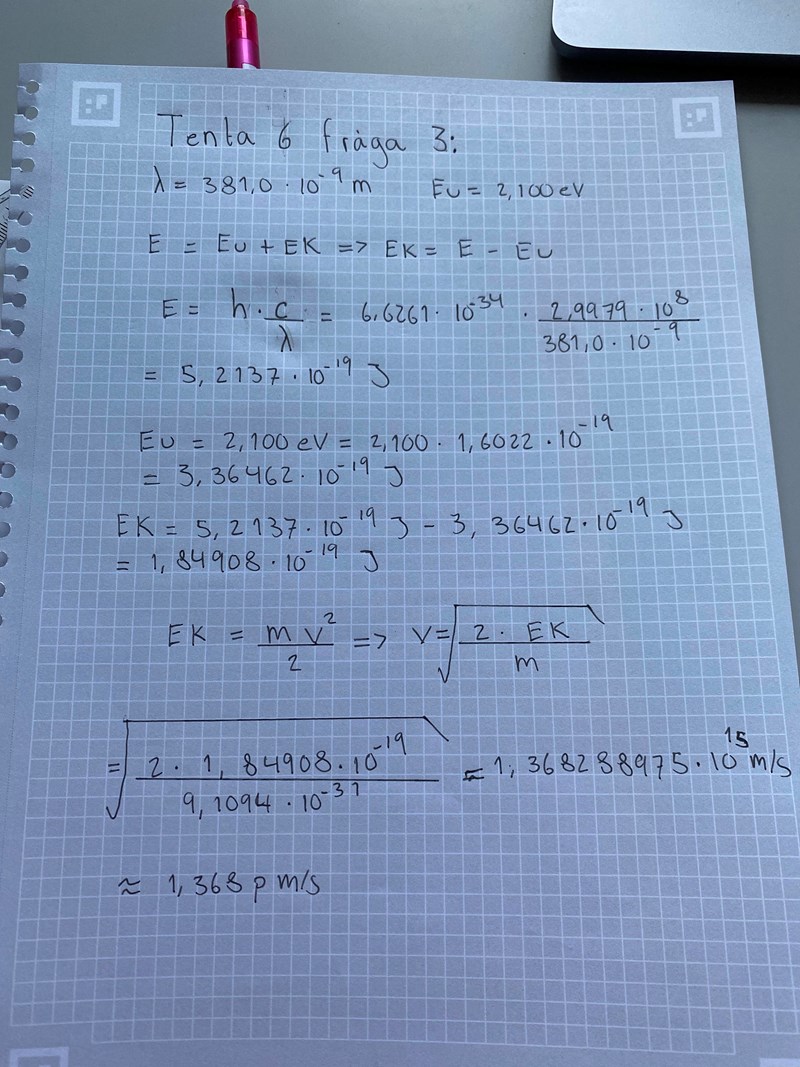 Tenta 6 fråga 3:
λ = 381,0 · 10⁻⁹ m    EU = 2,100 eV
E = EU + EK => EK = E - EU
E = h · c/λ = 6,6261 · 10⁻³⁴ · 2,9979 · 10⁸ / 381,0 · 10⁻⁹
= 5,2137 · 10⁻¹⁹ J
EU = 2,100 eV = 2,100 · 1,6022 · 10⁻¹⁹
= 3,36462 · 10⁻¹⁹ J
EK = 5,2137 · 10⁻¹⁹ J - 3,36462 · 10⁻¹⁹ J
= 1,84908 · 10⁻¹⁹ J
EK = mv²/2 => v = √(2 · EK / m)
= √(2 · 1,84908 · 10⁻¹⁹ / 9,1094 · 10⁻³¹) = 1,368288975 · 10¹⁵ m/s
≈ 1,368 p m/s